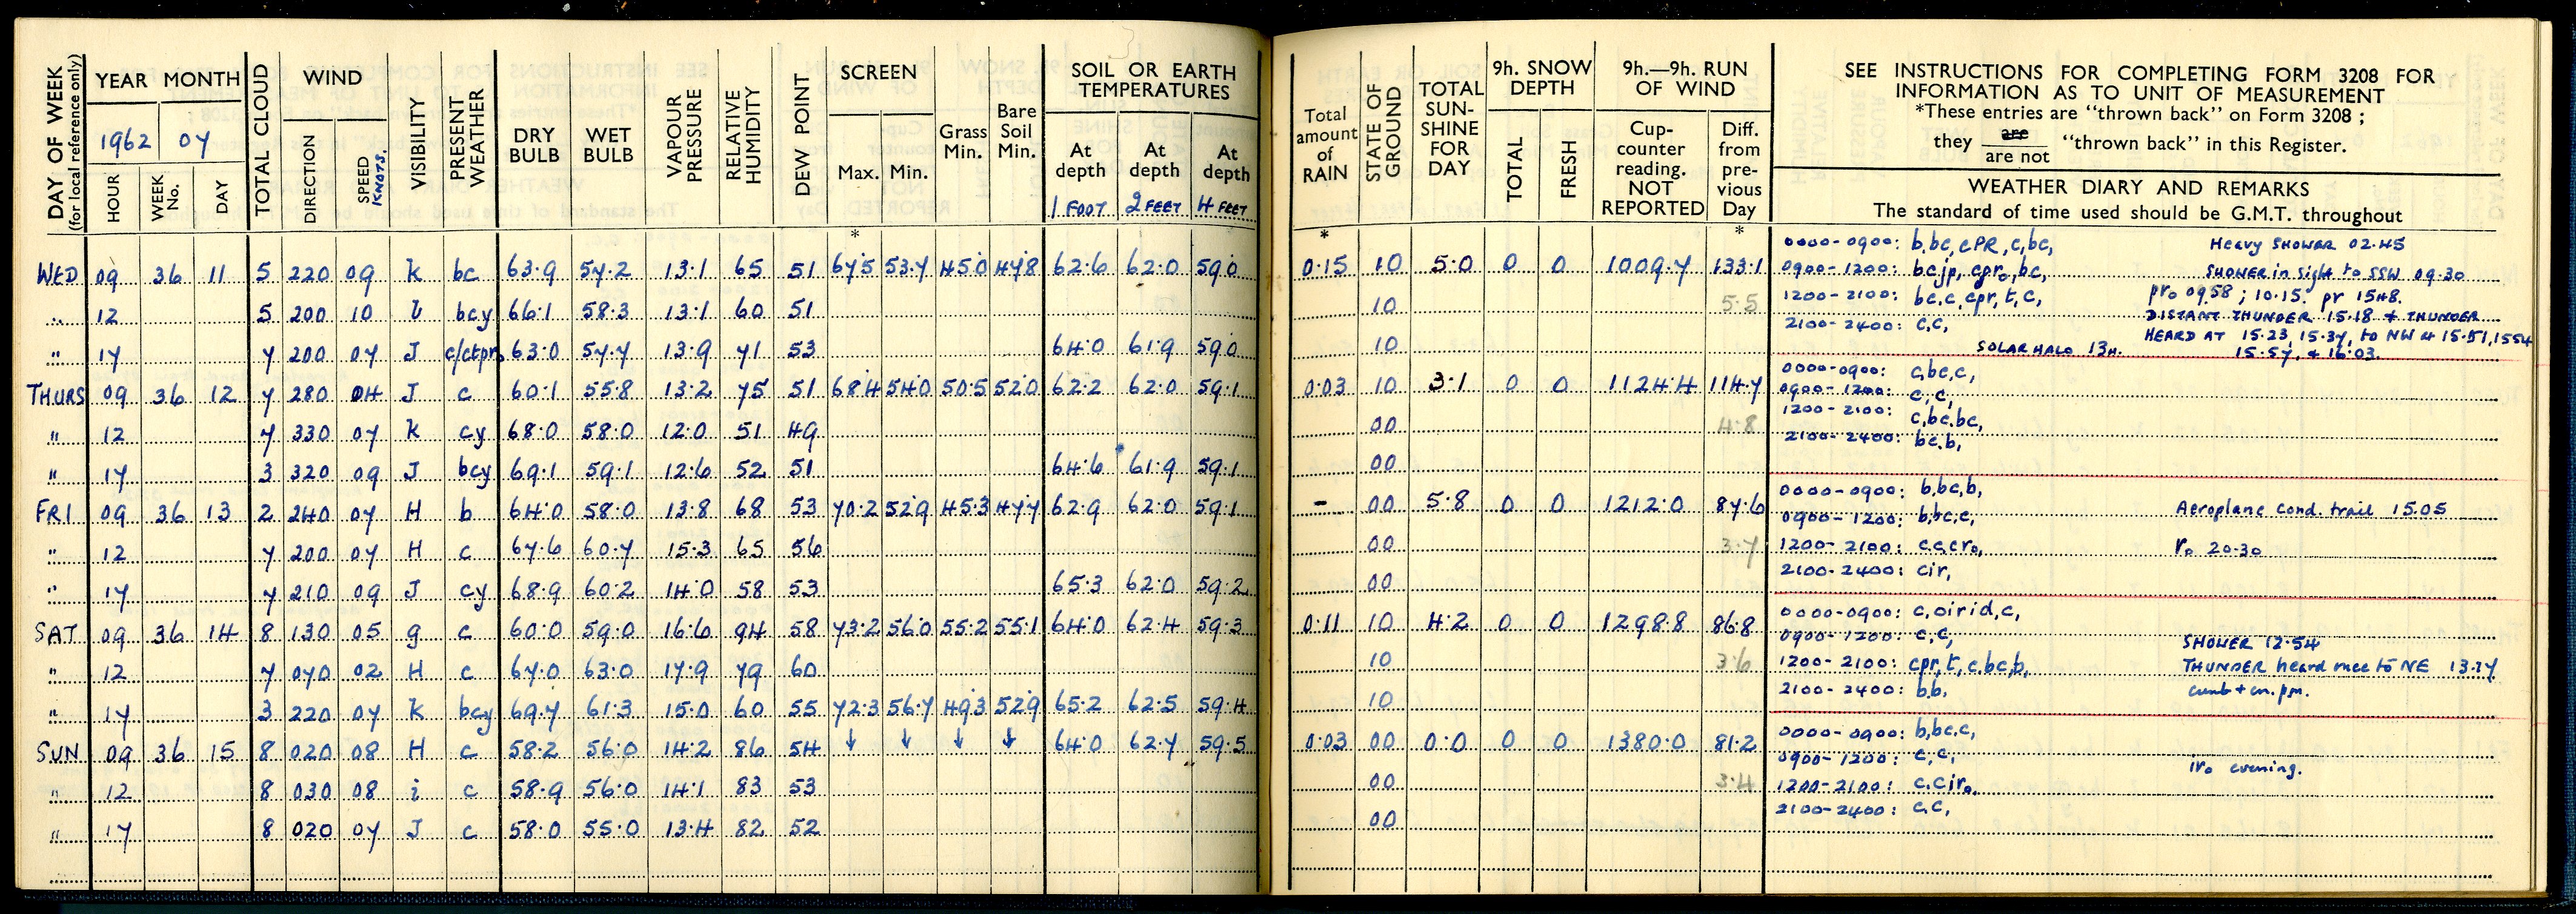 DAY OF WEEK (for local reference only)
YEAR MONTH
1962 07
HOUR WEEK No. DAY
TOTAL CLOUD
WIND
DIRECTION SPEED KNOTS.
VISIBILITY
PRESENT WEATHER
DRY BULB
WET BULB
VAPOUR PRESSURE
RELATIVE HUMIDITY
DEW POINT
SCREEN
Max. Min.
Grass Min.
Bare Soil Min.
SOIL OR EARTH TEMPERATURES
At depth 1 FOOT
At depth 2 FEET
At depth 4 FEET
*
WED 09 36 11 5 220 09 k bc 63.9 57.2 13.1 65 51 67.5 53.7 45.0 47.8 62.6 62.0 59.0
" 12 5 200 10 bcy 66.1 58.3 13.1 60 51
" 17 7 200 07 J c/ctpr 63.0 57.7 13.9 71 53 64.0 61.9 59.0
THURS 09 36 12 7 280 04 J c 60.1 55.8 13.2 75 51 68.4 54.0 50.5 52.0 62.2 62.0 59.1
" 12 7 330 07 k cy 68.0 58.0 12.0 51 49
" 17 3 320 09 J bcy 69.1 59.1 12.6 52 51 64.6 61.9 59.1
FRI 09 36 13 2 240 07 H b 64.0 58.0 13.8 68 53 70.2 52.9 45.3 47.7 62.9 62.0 59.1
" 12 7 200 07 H c 67.6 60.7 15.3 65 56
" 17 7 210 09 J cy 68.9 60.2 14.0 58 53 65.3 62.0 59.2
SAT 09 36 14 8 130 05 g c 60.0 59.0 16.6 94 58 73.2 56.0 55.2 55.1 64.0 62.4 59.3
" 12 7 070 02 H c 67.0 63.0 17.9 79 60
" 17 3 220 07 k bcy 69.7 61.3 15.0 60 55 72.3 56.7 49.3 52.9 65.2 62.5 59.4
SUN 09 36 15 8 020 08 H c 58.2 56.0 14.2 86 54 ↓ ↓ ↓ ↓ 64.0 62.7 59.5
" 12 8 030 08 i c 58.9 56.0 14.1 83 53
" 17 8 020 07 J c 58.0 55.0 13.4 82 52
Total amount of RAIN
STATE OF GROUND
TOTAL SUN-SHINE FOR DAY
9h. SNOW DEPTH
TOTAL FRESH
9h.—9h. RUN OF WIND
Cup-counter reading. NOT REPORTED
Diff. from pre-vious Day
SEE INSTRUCTIONS FOR COMPLETING FORM 3208 FOR
INFORMATION AS TO UNIT OF MEASUREMENT
*These entries are "thrown back" on Form 3208 ;
they are / are not "thrown back" in this Register.
WEATHER DIARY AND REMARKS
The standard of time used should be G.M.T. throughout
* *
0.15 10 5.0 0 0 1009.7 133.1
10 5.5
10
0000-0900: b,bc,cPR,c,bc, Heavy SHOWER 02.45
0900-1200: bcjp, cpr₀, bc, SHOWER in sight to SSW 09.30
1200-2100: bc,c,cpr,t,c, pr₀ 0958 ; 10.15. pr 1548.
2100-2400: c,c, DISTANT THUNDER 15.18 & THUNDER
HEARD AT 15.23, 15.37, to NW & 15.51, 1554
SOLAR HALO 13H. 15.57, & 16.03.
0.03 10 3.1 0 0 1124.4 114.7
00 4.8
00
0000-0900: c,bc,c,
0900-1200: c,c,
1200-2100: c,bc,bc,
2100-2400: bc,b,
- 00 5.8 0 0 1212.0 87.6
00 3.7
00
0000-0900: b,bc,b,
0900-1200: b,bc,c, Aeroplane cond. trail 15.05
1200-2100: c,c,cr₀, r₀ 20.30
2100-2400: cir,
0.11 10 4.2 0 0 1298.8 86.8
10 3.6
10
0000-0900: c,oirid,c,
0900-1200: c,c, SHOWER 12.54
1200-2100: cpr,t,c,bc,b, THUNDER heard once to NE 13.27
2100-2400: b,b, cumb + cn. pm.
0.03 00 0.0 0 0 1380.0 81.2
00 3.4
00
0000-0900: b,bc,c,
0900-1200: c,c, ir₀ evening.
1200-2100: c,cir₀,
2100-2400: c,c,